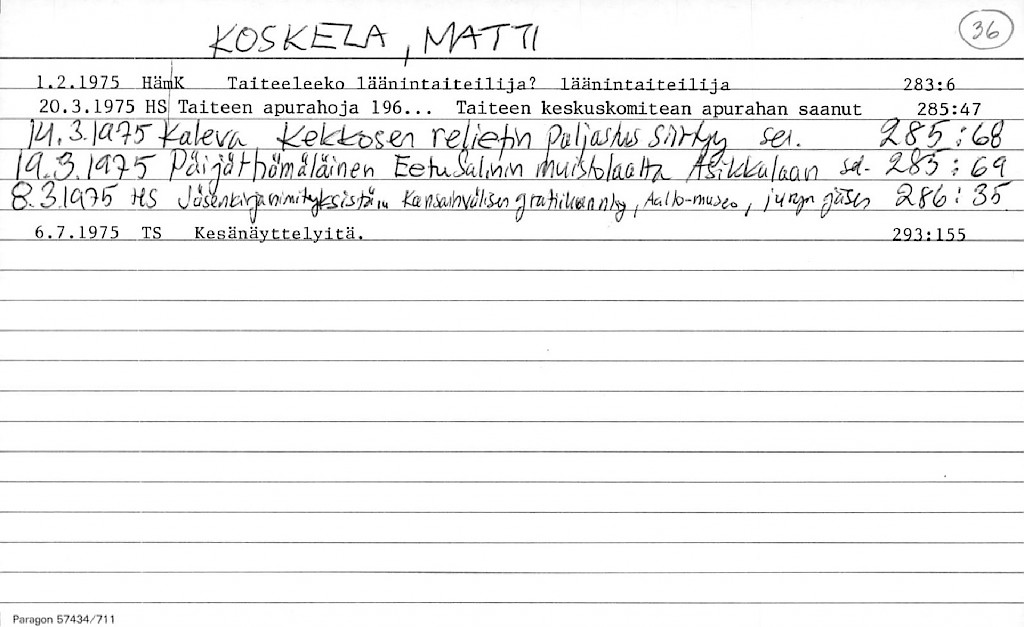 KOSKELA, MATTI 36
1.2.1975 HämK Taiteeleeko läänintaiteilija? läänintaiteilija 283:6
20.3.1975 HS Taiteen apurahoja 196... Taiteen keskuskomitean apurahan saanut 285:47
14.3.1975 Kaleva Kekkosen reliefin paljastus siirtyy sel. 285:68
19.3.1975 Päijäthämäläinen Eetu Salinin muistolaatta Asikkalaan sel. 285:69
8.3.1975 HS Jäsenkirjanimityksistä Kansainvälisen grafiikan, Aalto-museo, juryn jäsen 286:35
6.7.1975 TS Kesänäyttelyitä. 293:155
Paragon 57434/711